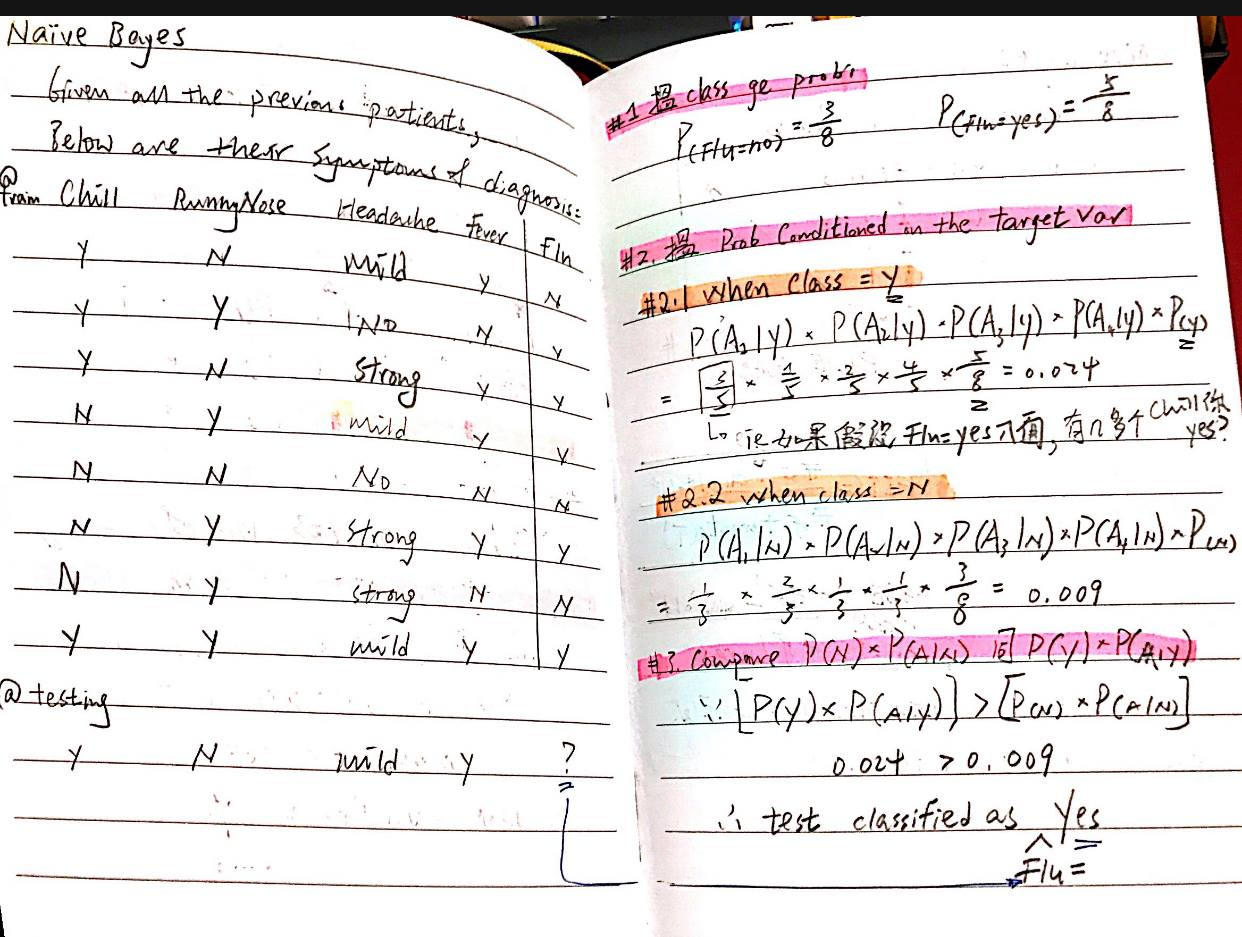 Naïve Bayes
Given all the previous patients,
Below are their symptoms & diagnosis:
@train Chill RunnyNose Headache Fever Flu
Y N mild Y N
Y Y NO N Y
Y N strong Y Y
N Y mild Y Y
N N No N N
N Y strong Y Y
N Y strong N N
Y Y mild Y Y
@testing
Y N mild Y ?
#1 搵 class ge prob:
P(Flu=no) = 3/8 P(Flu=yes) = 5/8
#2. 搵 Prob Conditioned on the target var
#2.1 when class = Y
P(A₂|Y) × P(A₂|y) × P(A₃|y) × P(A₄|y) × P(y)
= 3/5 × 1/5 × 2/5 × 4/5 × 5/8 = 0.024
↳ ie 如果假設 Flu=yes 入面, 有几多个 Chill 係 yes?
#2.2 when class = N
P(A₁|N) × P(A₂|N) × P(A₃|N) × P(A₄|N) × P(N)
= 1/3 × 2/3 × 1/3 × 1/3 × 3/8 = 0.009
#3. Compare P(N) × P(A|N) 同 P(Y) × P(A|Y)
∵ [P(Y) × P(A|Y)] > [P(N) × P(A|N)]
0.024 > 0.009
∴ test classified as Yes
Flu=